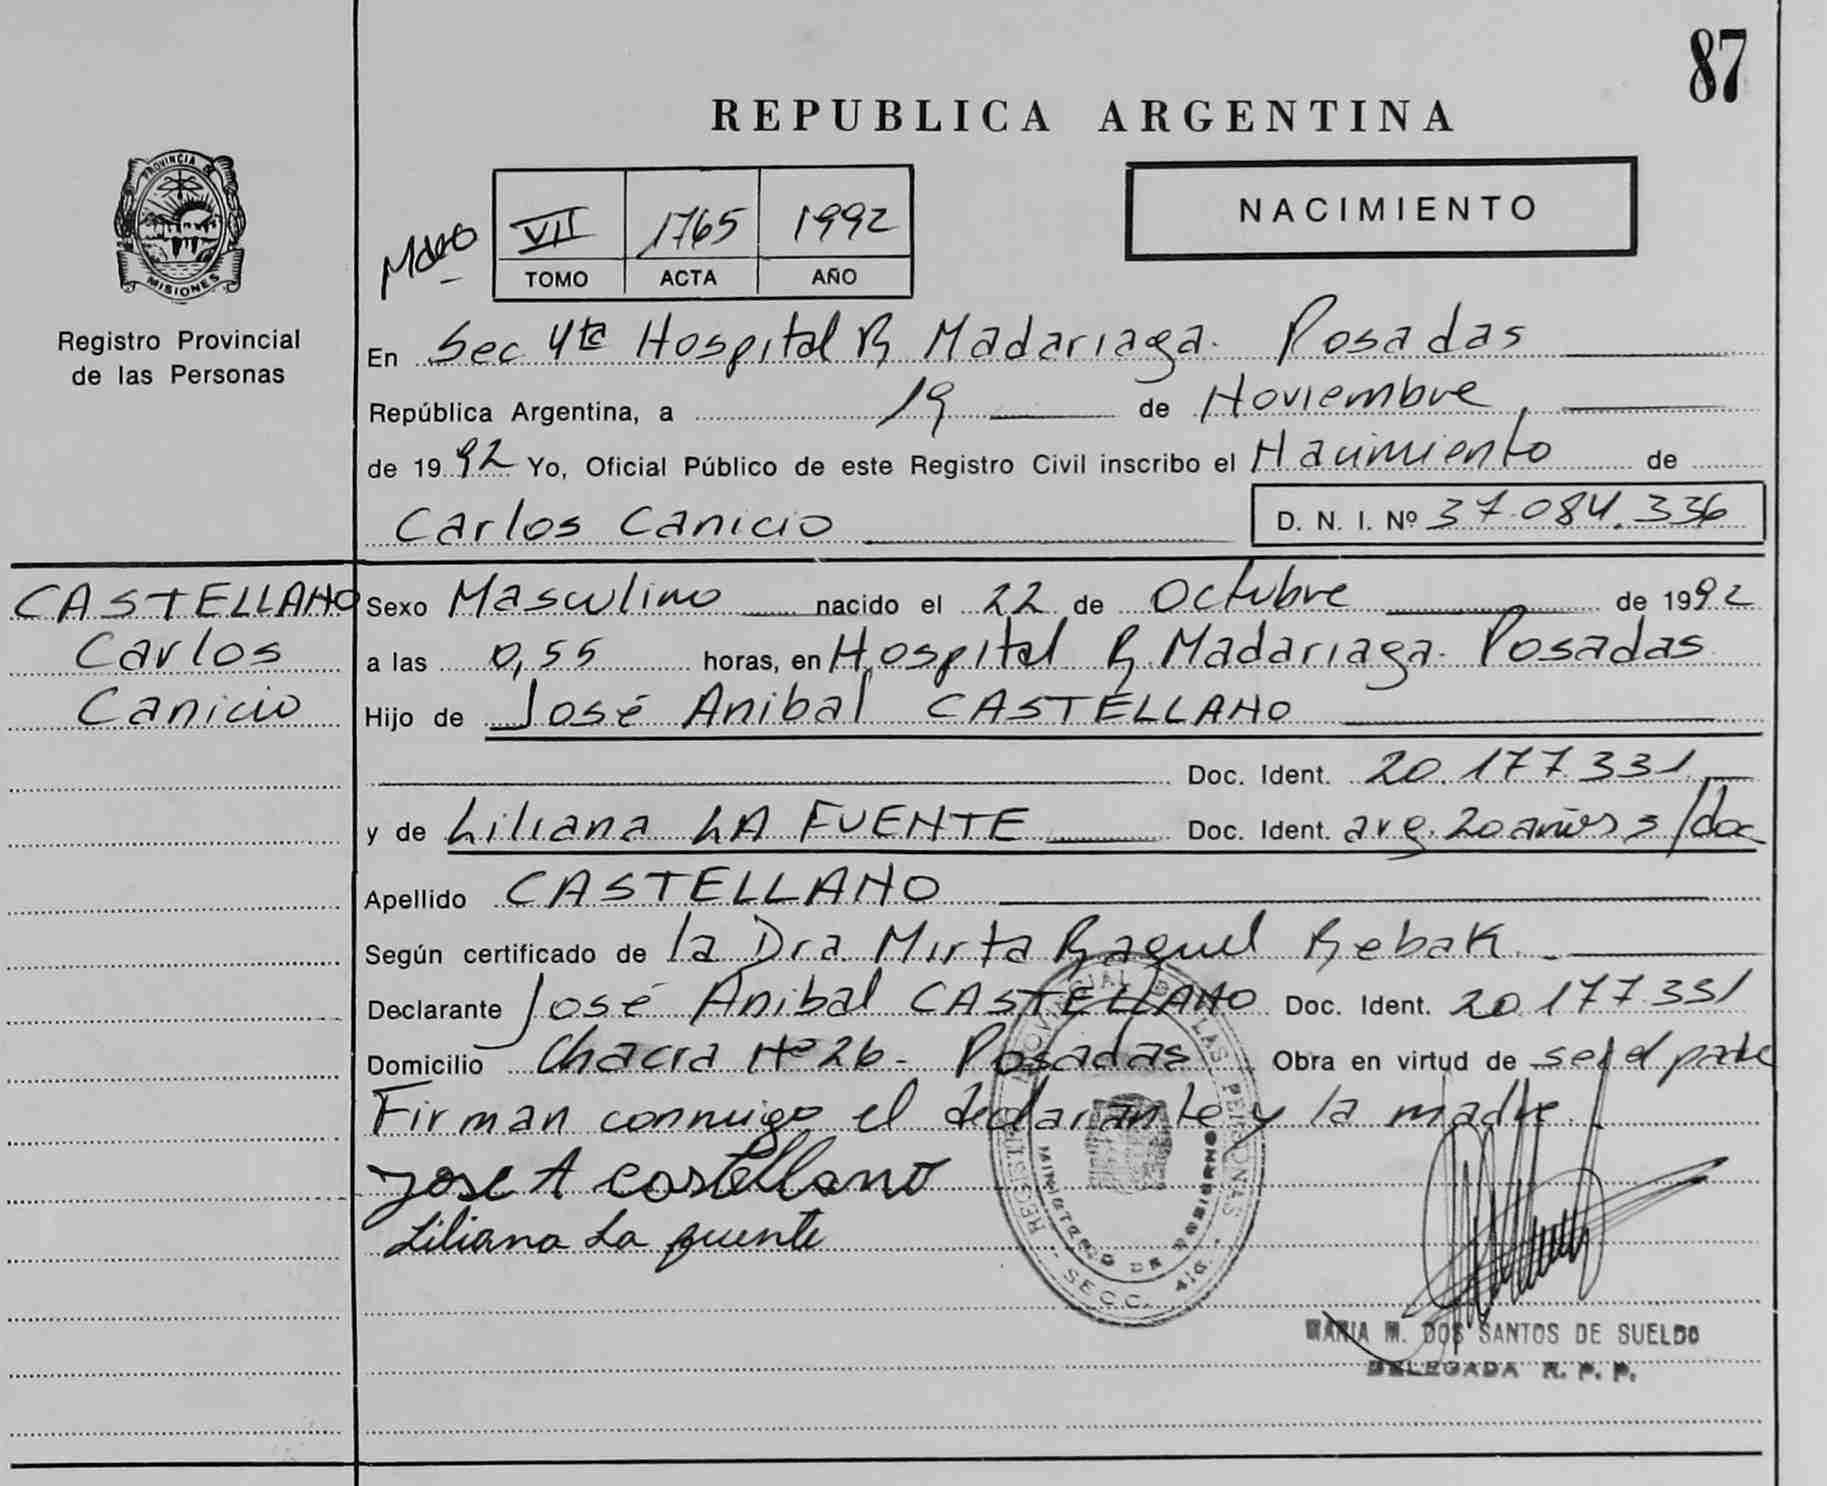 87
REPUBLICA ARGENTINA
PROVINCIA
MISIONES
Registro Provincial
de las Personas
VII 1765 1992
TOMO ACTA AÑO
NACIMIENTO
En Sec 4ta Hospital R Madariaga. Posadas
República Argentina, a 19 de Noviembre,
de 1992 Yo, Oficial Público de este Registro Civil inscribo el Nacimiento de
Carlos Canicio D. N. I. Nº 37.084.336
CASTELLANO
Carlos
Canicio
Sexo Masculino nacido el 22 de Octubre de 1992
a las 0,55 horas, en Hospital R. Madariaga. Posadas
Hijo de José Anibal CASTELLANO
Doc. Ident. 20.177.331
y de Liliana LA FUENTE Doc. Ident. arg. 20 años s/doc
Apellido CASTELLANO
Según certificado de la Dra. Mirta Raquel Rebak.
Declarante José Anibal CASTELLANO Doc. Ident. 20.177.331
Domicilio Chacra Nº 26 - Posadas Obra en virtud de ser el padre
Firman conmigo el declarante y la madre.
Jose A Castellano
Liliana La fuente
REGISTRO PROVINCIAL DE LAS PERSONAS
MINISTERIO DE GOBIERNO
SECC. 4ta.
MARIA M. DOS SANTOS DE SUELDO
DELEGADA R. P. P.